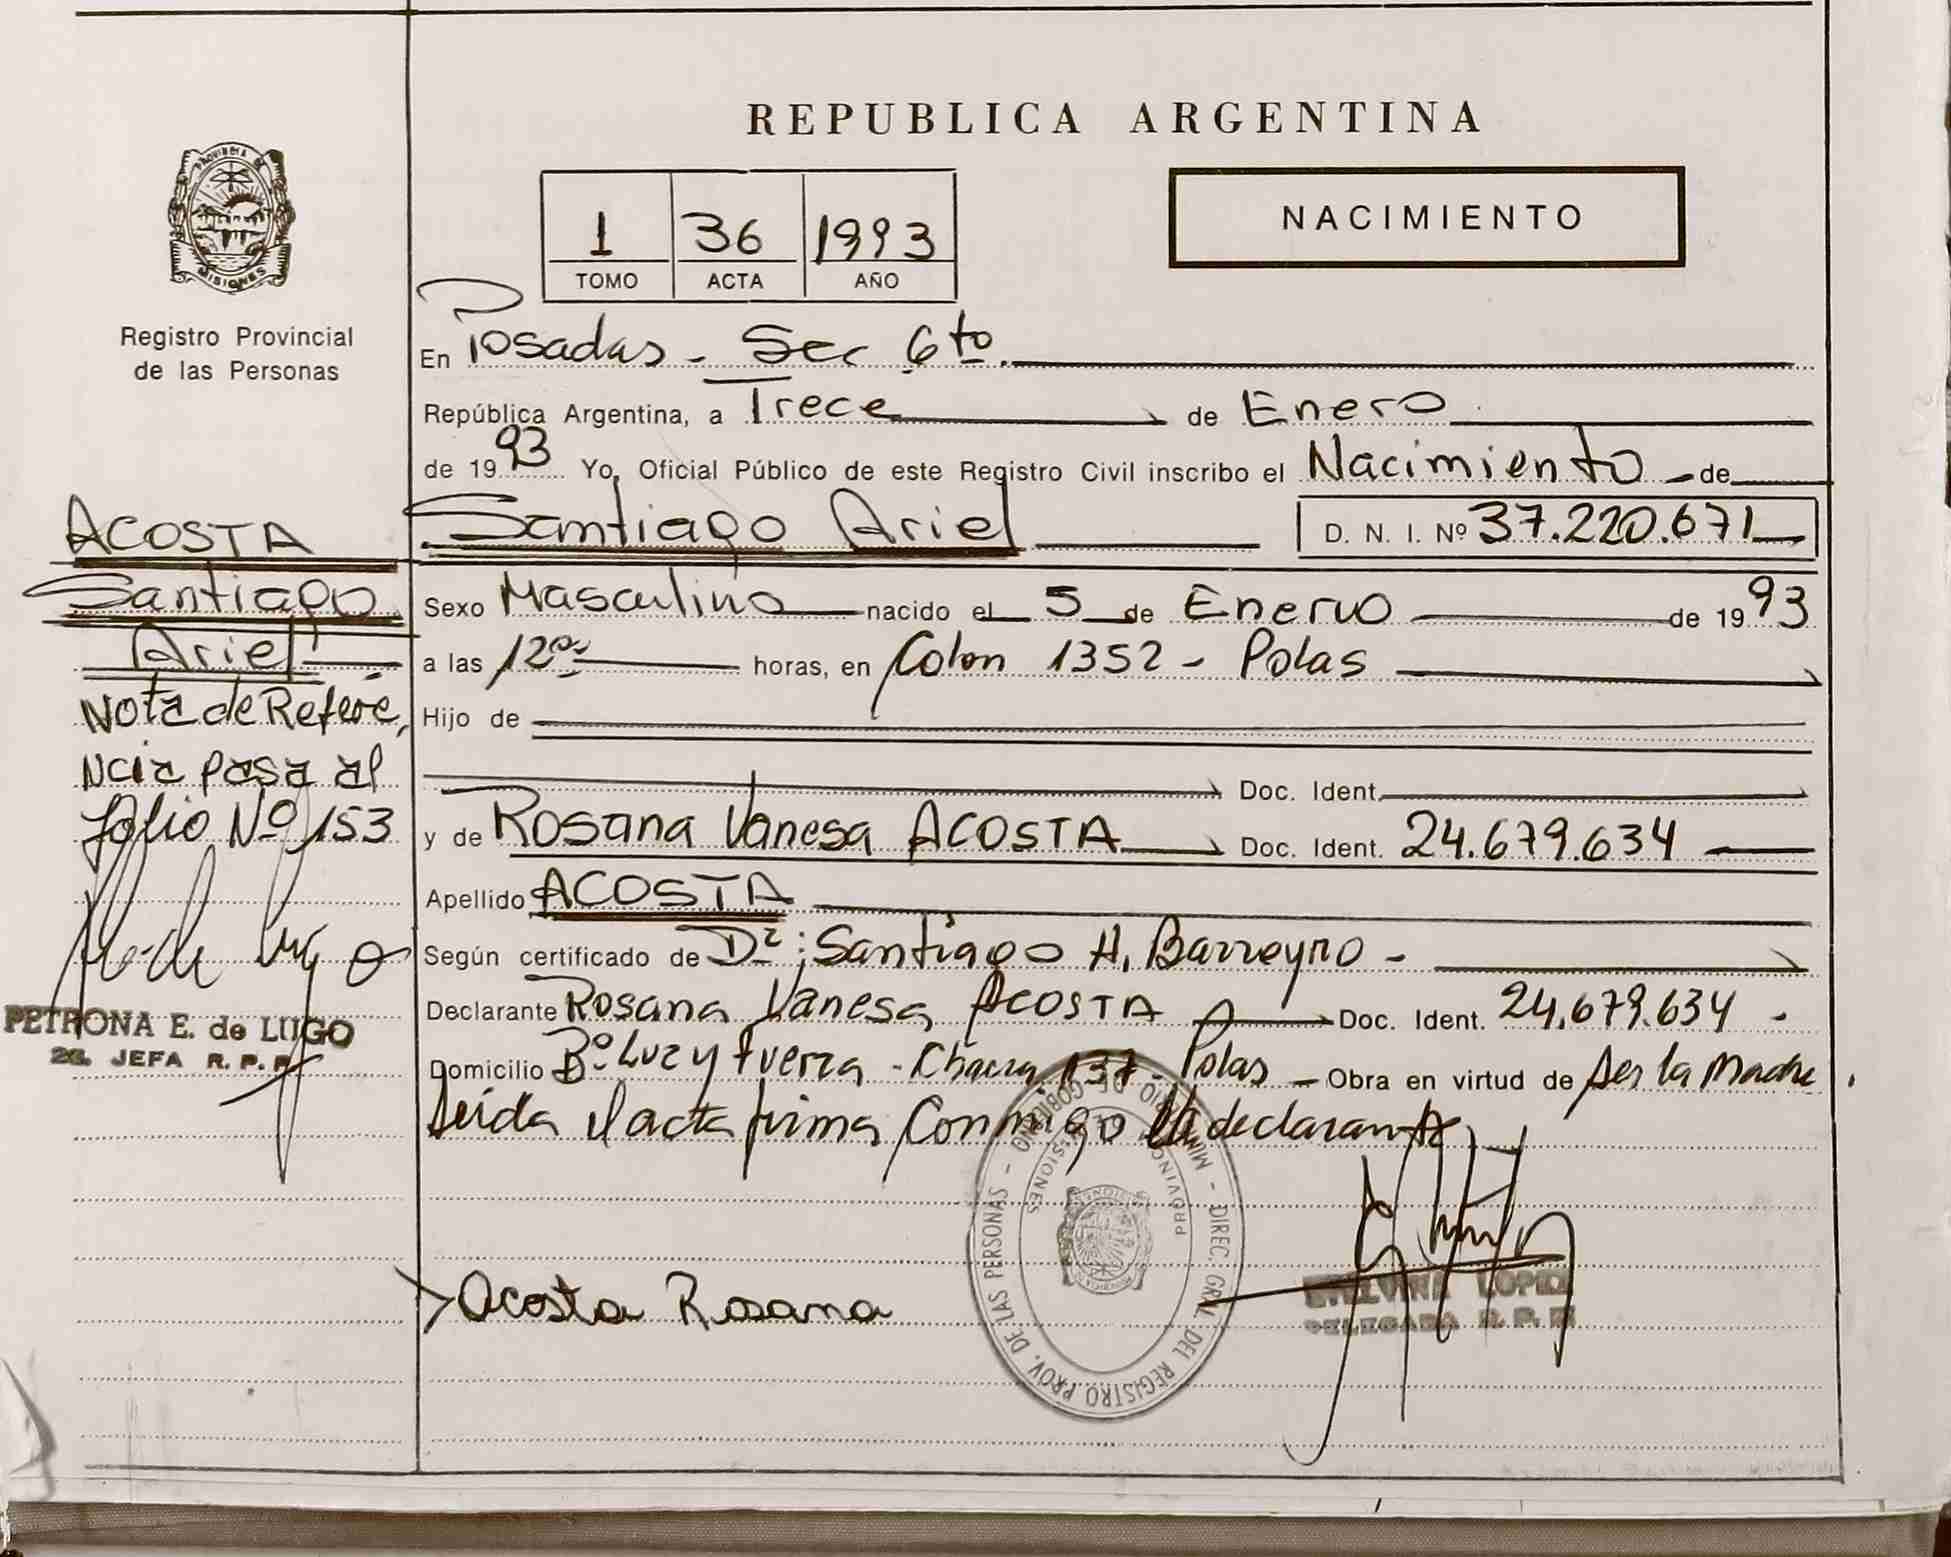 REPUBLICA ARGENTINA
PROVINCIA DE
MISIONES
Registro Provincial
de las Personas
1 36 1993
TOMO ACTA AÑO
NACIMIENTO
En Posadas - Sec 6to.
República Argentina, a Trece de Enero
de 1993 Yo, Oficial Público de este Registro Civil inscribo el Nacimiento - de
Santiago Ariel D. N. I. Nº 37.220.671
Sexo Masculino nacido el 5 de Enero de 1993
a las 12 horas, en Colon 1352 - Pdas
Hijo de
Doc. Ident.
y de Rosana Vanesa ACOSTA Doc. Ident. 24.679.634
Apellido ACOSTA
Según certificado de Dr: Santiago H. Barreyro -
Declarante Rosana Vanesa ACOSTA Doc. Ident. 24.679.634 -
Domicilio Bº Luz y Fuerza - Chacra 137 - Pdas - Obra en virtud de ser la madre.
Leida el acta firma conmigo la declarante
Acosta Rosana
ETELVINA LOPEZ
DELEGADA R. P. P.
MINISTERIO DE GOBIERNO - DIREC. GRAL. DEL REGISTRO PROV. DE LAS PERSONAS -
PROVINCIA DE MISIONES
ACOSTA
Santiago
Ariel
Nota de Refere,
ncia pasa al
folio Nº 153
PETRONA E. de LUGO
JEFA R. P. P.